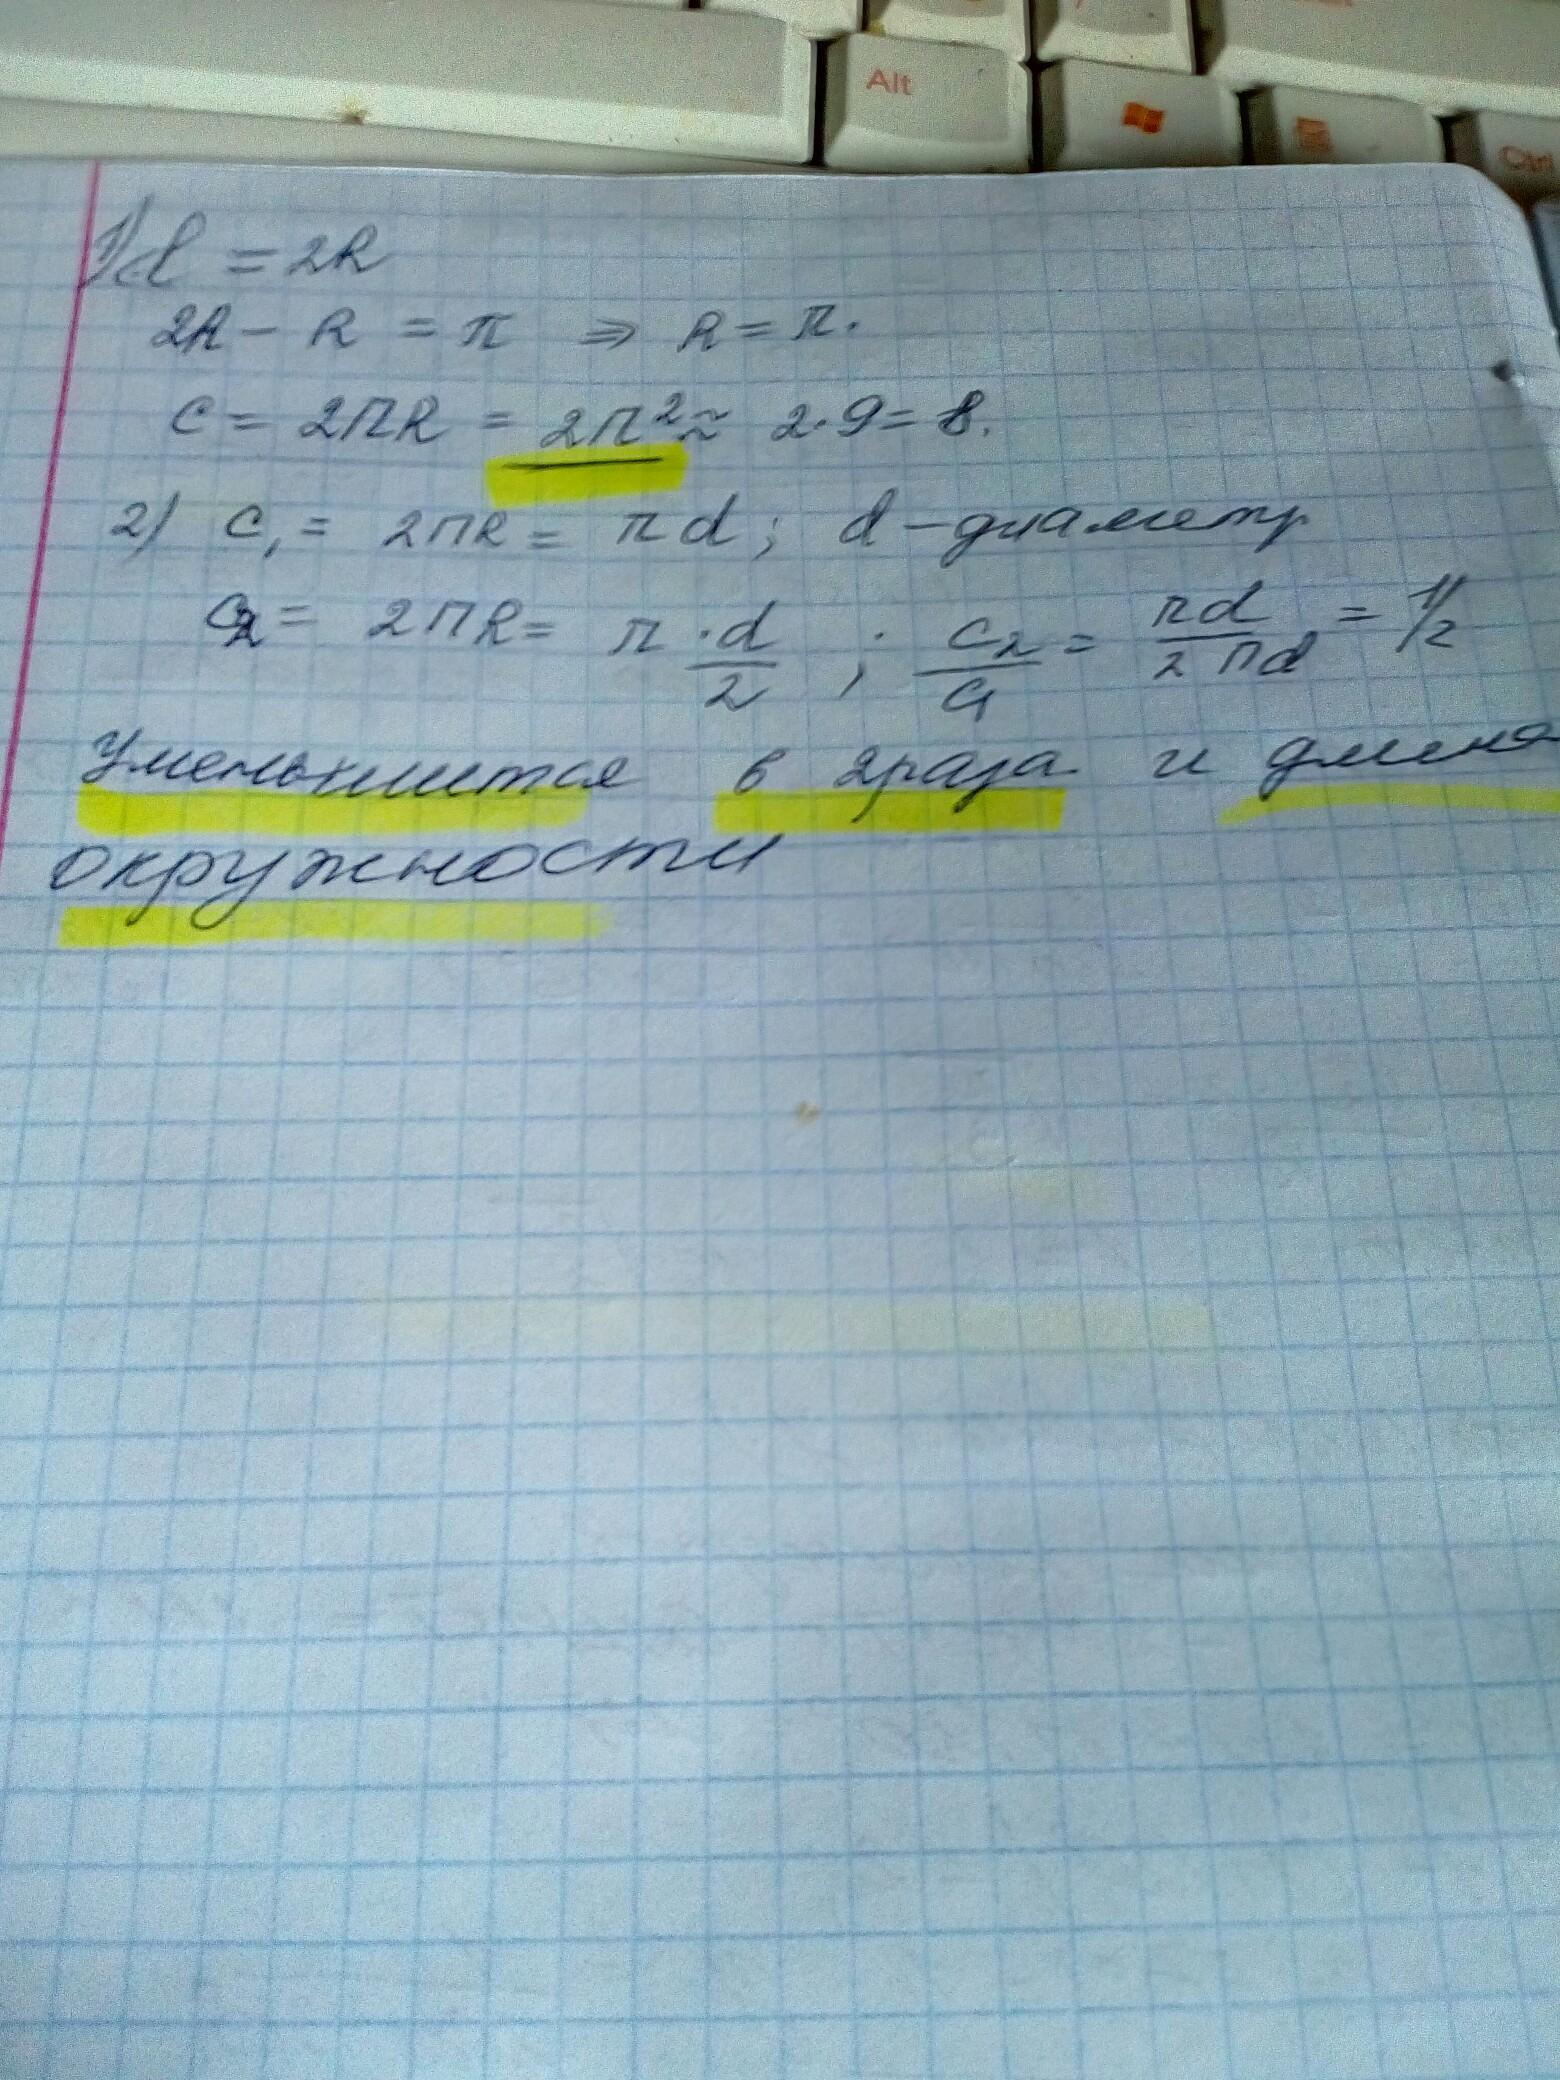 Alt
Ctrl
1) d = 2R
2R – R = π ⇒ R = π.
C = 2πR = 2π² ≈ 2·9 = 8.
2) C₁ = 2πR = πd; d – диаметр
C₂ = 2πR = π · d/2 ; C₂/C₁ = πd/2πd = 1/2
Уменьшится в 2 раза и длина
окружности